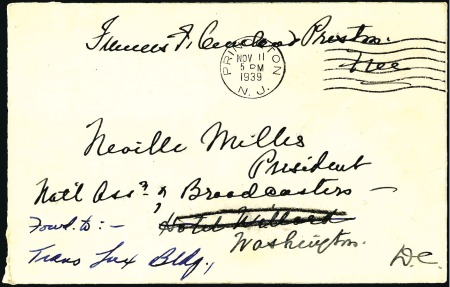 Frances F. Cleveland Preston
Free
PRINCETON
NOV 11
5 PM
1939
N. J.
Neville Miller
President
Nat'l Ass'n of Broadcasters —
Fowd. to: — Hotel Willard
Washington.
Trans Lux Bldg., D.C.